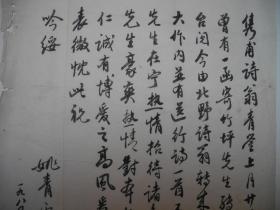 隽甫诗翁青鉴上月廿
曾有一函寄竹坪先生转
台阅今由北野诗翁转来
大作内並有送行诗一首
先生在宁热情招待诸
先生豪爽热情對
仁诚有博爱之高风
表微忱此祝
吟绥
姚青
一九八